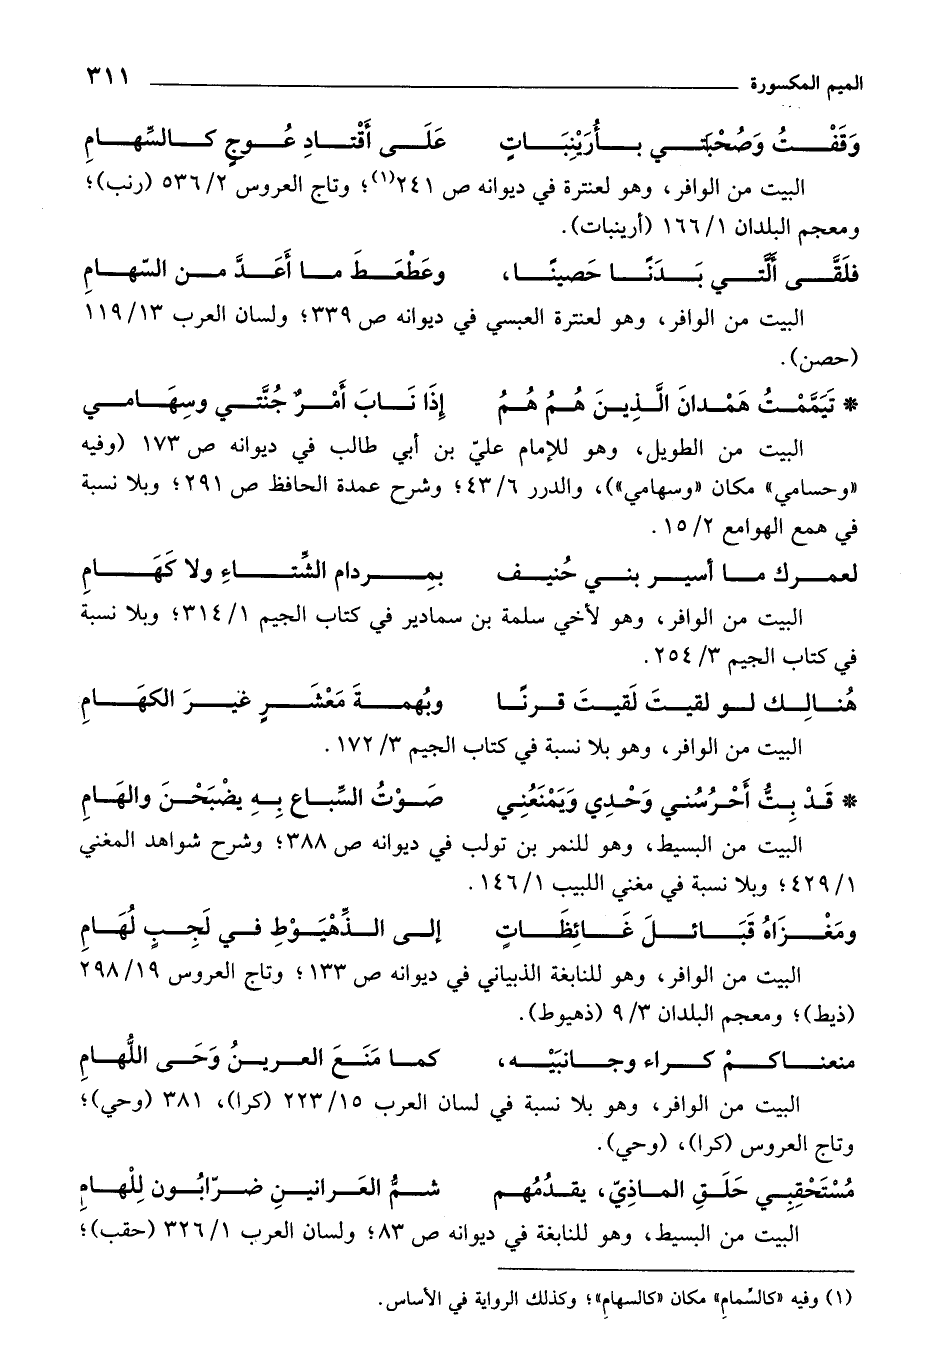 الميم المكسورة ٣١١
وَقَفْتُ وَصُحْبَتي بأُرَيْنِبَاتٍ عَلَى أَقْتادِ عُوجٍ كالسِّهامِ
البيت من الوافر، وهو لعنترة في ديوانه ص ٢٤١(١)؛ وتاج العروس ٢/ ٥٣٦ (رنب)؛
ومعجم البلدان ١/ ١٦٦ (أرينبات).
فلَقَّى أَلَّتي بَدَنًا حَصينًا، وعَطْعَطَ ما أَعَدَّ من السّهامِ
البيت من الوافر، وهو لعنترة العبسي في ديوانه ص ٣٣٩؛ ولسان العرب ١٣/ ١١٩
(حصن).
* تَيَمَّمْتُ هَمْدانَ الَّذِينَ هُمُ هُمُ إِذَا نَابَ أَمْرٌ جُنَّتي وسِهَامي
البيت من الطويل، وهو للإمام عليّ بن أبي طالب في ديوانه ص ١٧٣ (وفيه
«وحسامي» مكان «وسهامي»)، والدرر ٦/ ٤٣؛ وشرح عمدة الحافظ ص ٢٩١؛ وبلا نسبة
في همع الهوامع ٢/ ١٥.
لعمرك ما أسير بني حُنيف بمردام الشِّتاءِ ولا كَهَامِ
البيت من الوافر، وهو لأخي سلمة بن سمادير في كتاب الجيم ١/ ٣١٤؛ وبلا نسبة
في كتاب الجيم ٣/ ٢٥٤.
هُنالِك لو لقيتَ لَقيتَ قرنًا وبُهمةَ مَعْشَرٍ غيرَ الكهَامِ
البيت من الوافر، وهو بلا نسبة في كتاب الجيم ٣/ ١٧٢.
* قَدْ بِتُّ أَحْرُسُني وَحْدِي وَيَمْنَعُنِي صَوْتُ السِّباعِ بِهِ يضْبَحْنَ والهَامِ
البيت من البسيط، وهو للنمر بن تولب في ديوانه ص ٣٨٨؛ وشرح شواهد المغني
١/ ٤٢٩؛ وبلا نسبة في مغني اللبيب ١/ ١٤٦.
ومَغْزَاهُ قَبَائلَ غَائِظَاتٍ إلى الذِّهْيَوْطِ في لَجِبٍ لُهَامِ
البيت من الوافر، وهو للنابغة الذبياني في ديوانه ص ١٣٣؛ وتاج العروس ١٩/ ٢٩٨
(ذيط)؛ ومعجم البلدان ٣/ ٩ (ذهيوط).
منعناكمْ كراء وجانبَيْه، كما مَنَعَ العرينُ وَحَى اللُّهامِ
البيت من الوافر، وهو بلا نسبة في لسان العرب ١٥/ ٢٢٣ (كرا)، ٣٨١ (وحي)؛
وتاج العروس (كرا)، (وحي).
مُسْتَحْقِبِي حَلَقِ الماذِيّ، يقدُمُهم شمُّ العَرانينِ ضرّابُون لِلْهامِ
البيت من البسيط، وهو للنابغة في ديوانه ص ٨٣؛ ولسان العرب ١/ ٣٢٦ (حقب)؛
(١) وفيه «كالسَّمامِ» مكان «كالسهام»؛ وكذلك الرواية في الأساس.